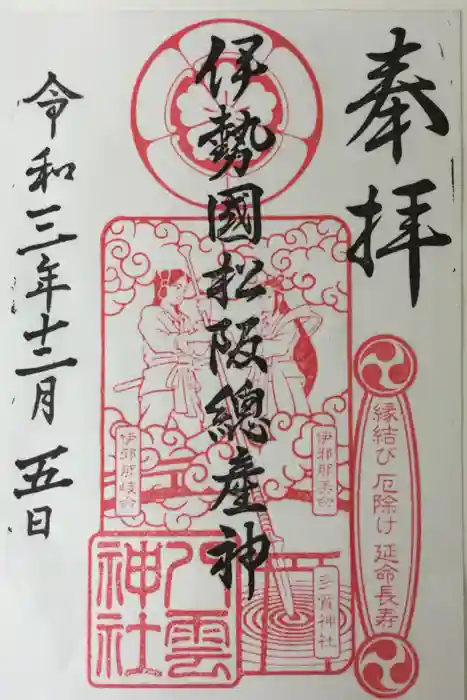 奉拝
縁結び 厄除け 延命長寿
伊勢國松阪總産神
伊邪那美命
伊邪那岐命
三賀神社
八雲神社
令和三年十二月五日